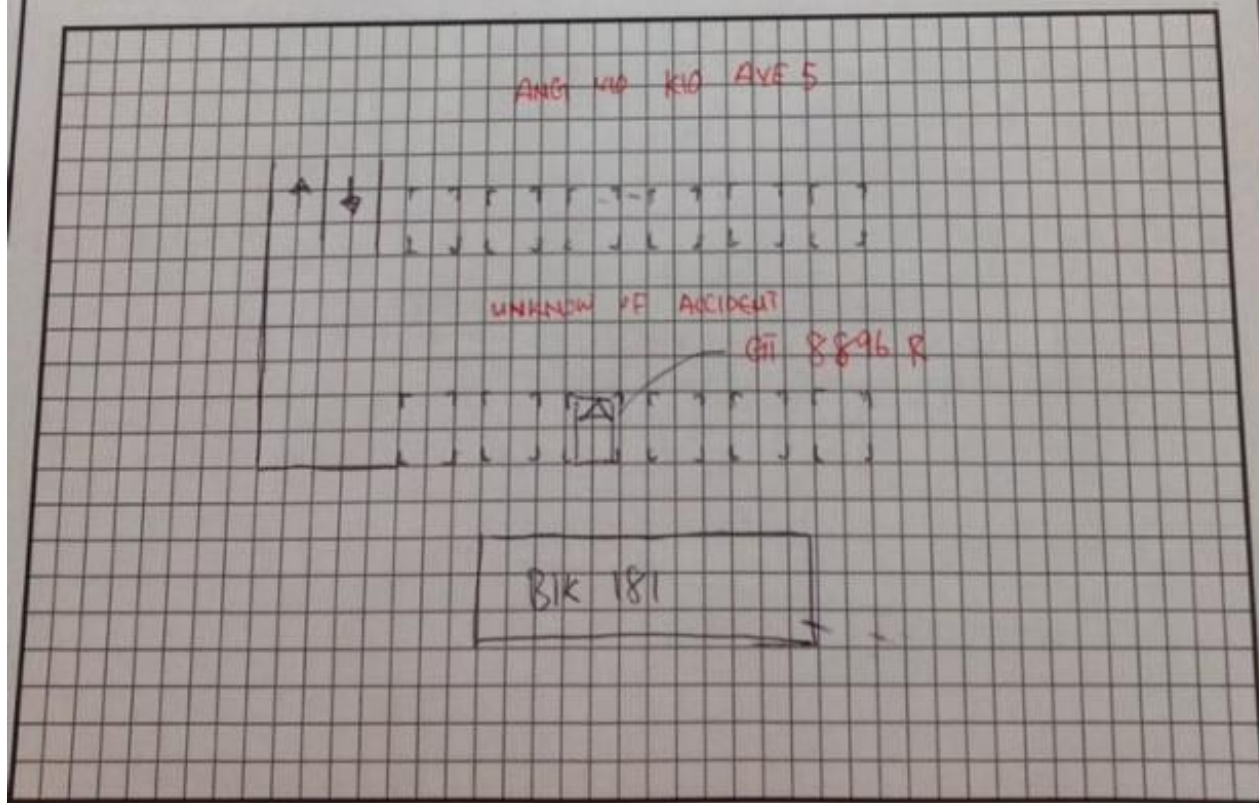 ANG MO KIO AVE 5
UNKNOW OF ACCIDENT
8896 R
Blk 181